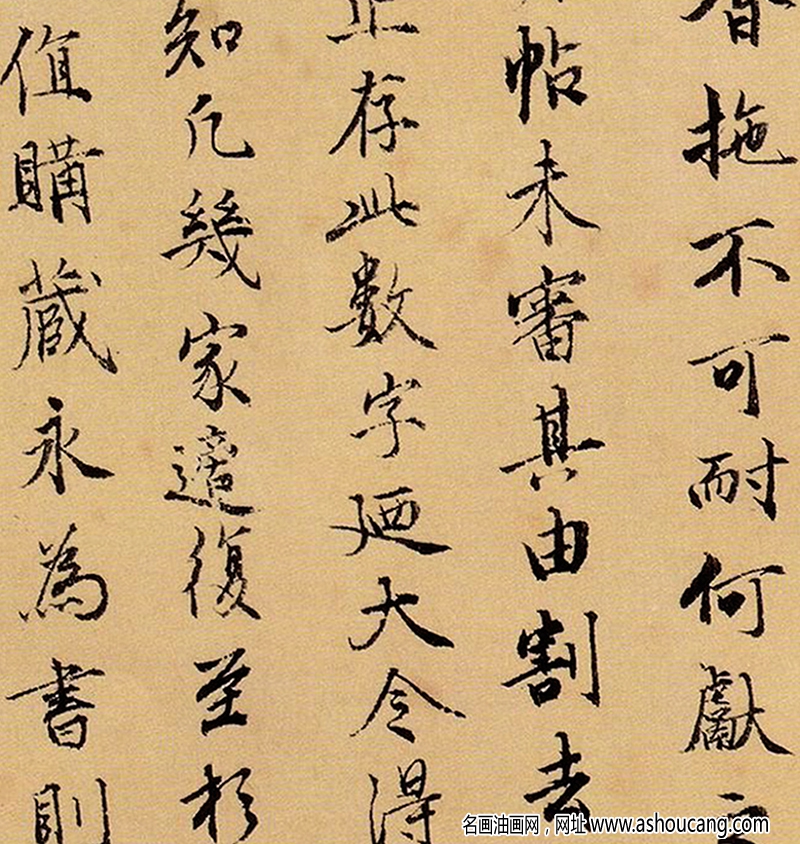 拖不可耐何獻之
帖未審其由割去
止存此數字廼大令得
知凡幾家適復至於
值購藏永為書則
名画油画网,网址 www.ashoucang.com